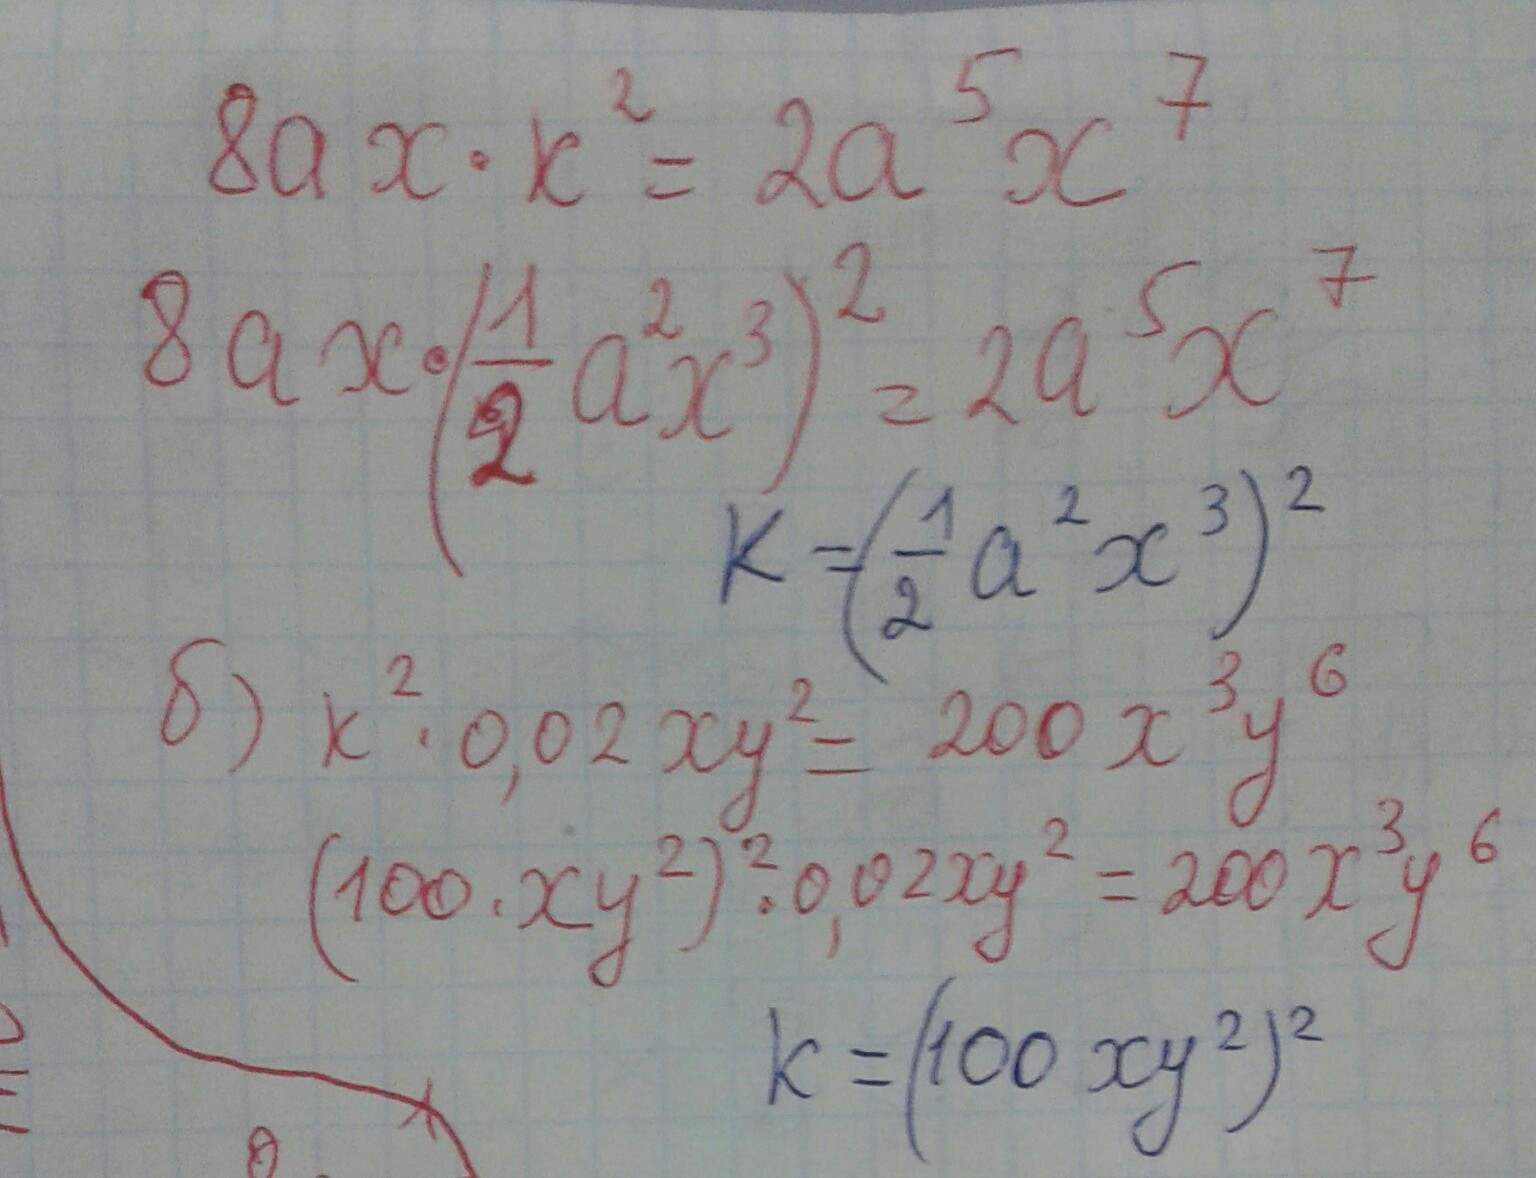 8ax · k² = 2a⁵x⁷
8ax · (1/2 a²x³)² = 2a⁵x⁷
K = (1/2 a²x³)²
б) k² · 0,02xy² = 200x³y⁶
(100 · xy²)² · 0,02xy² = 200x³y⁶
k = (100xy²)²